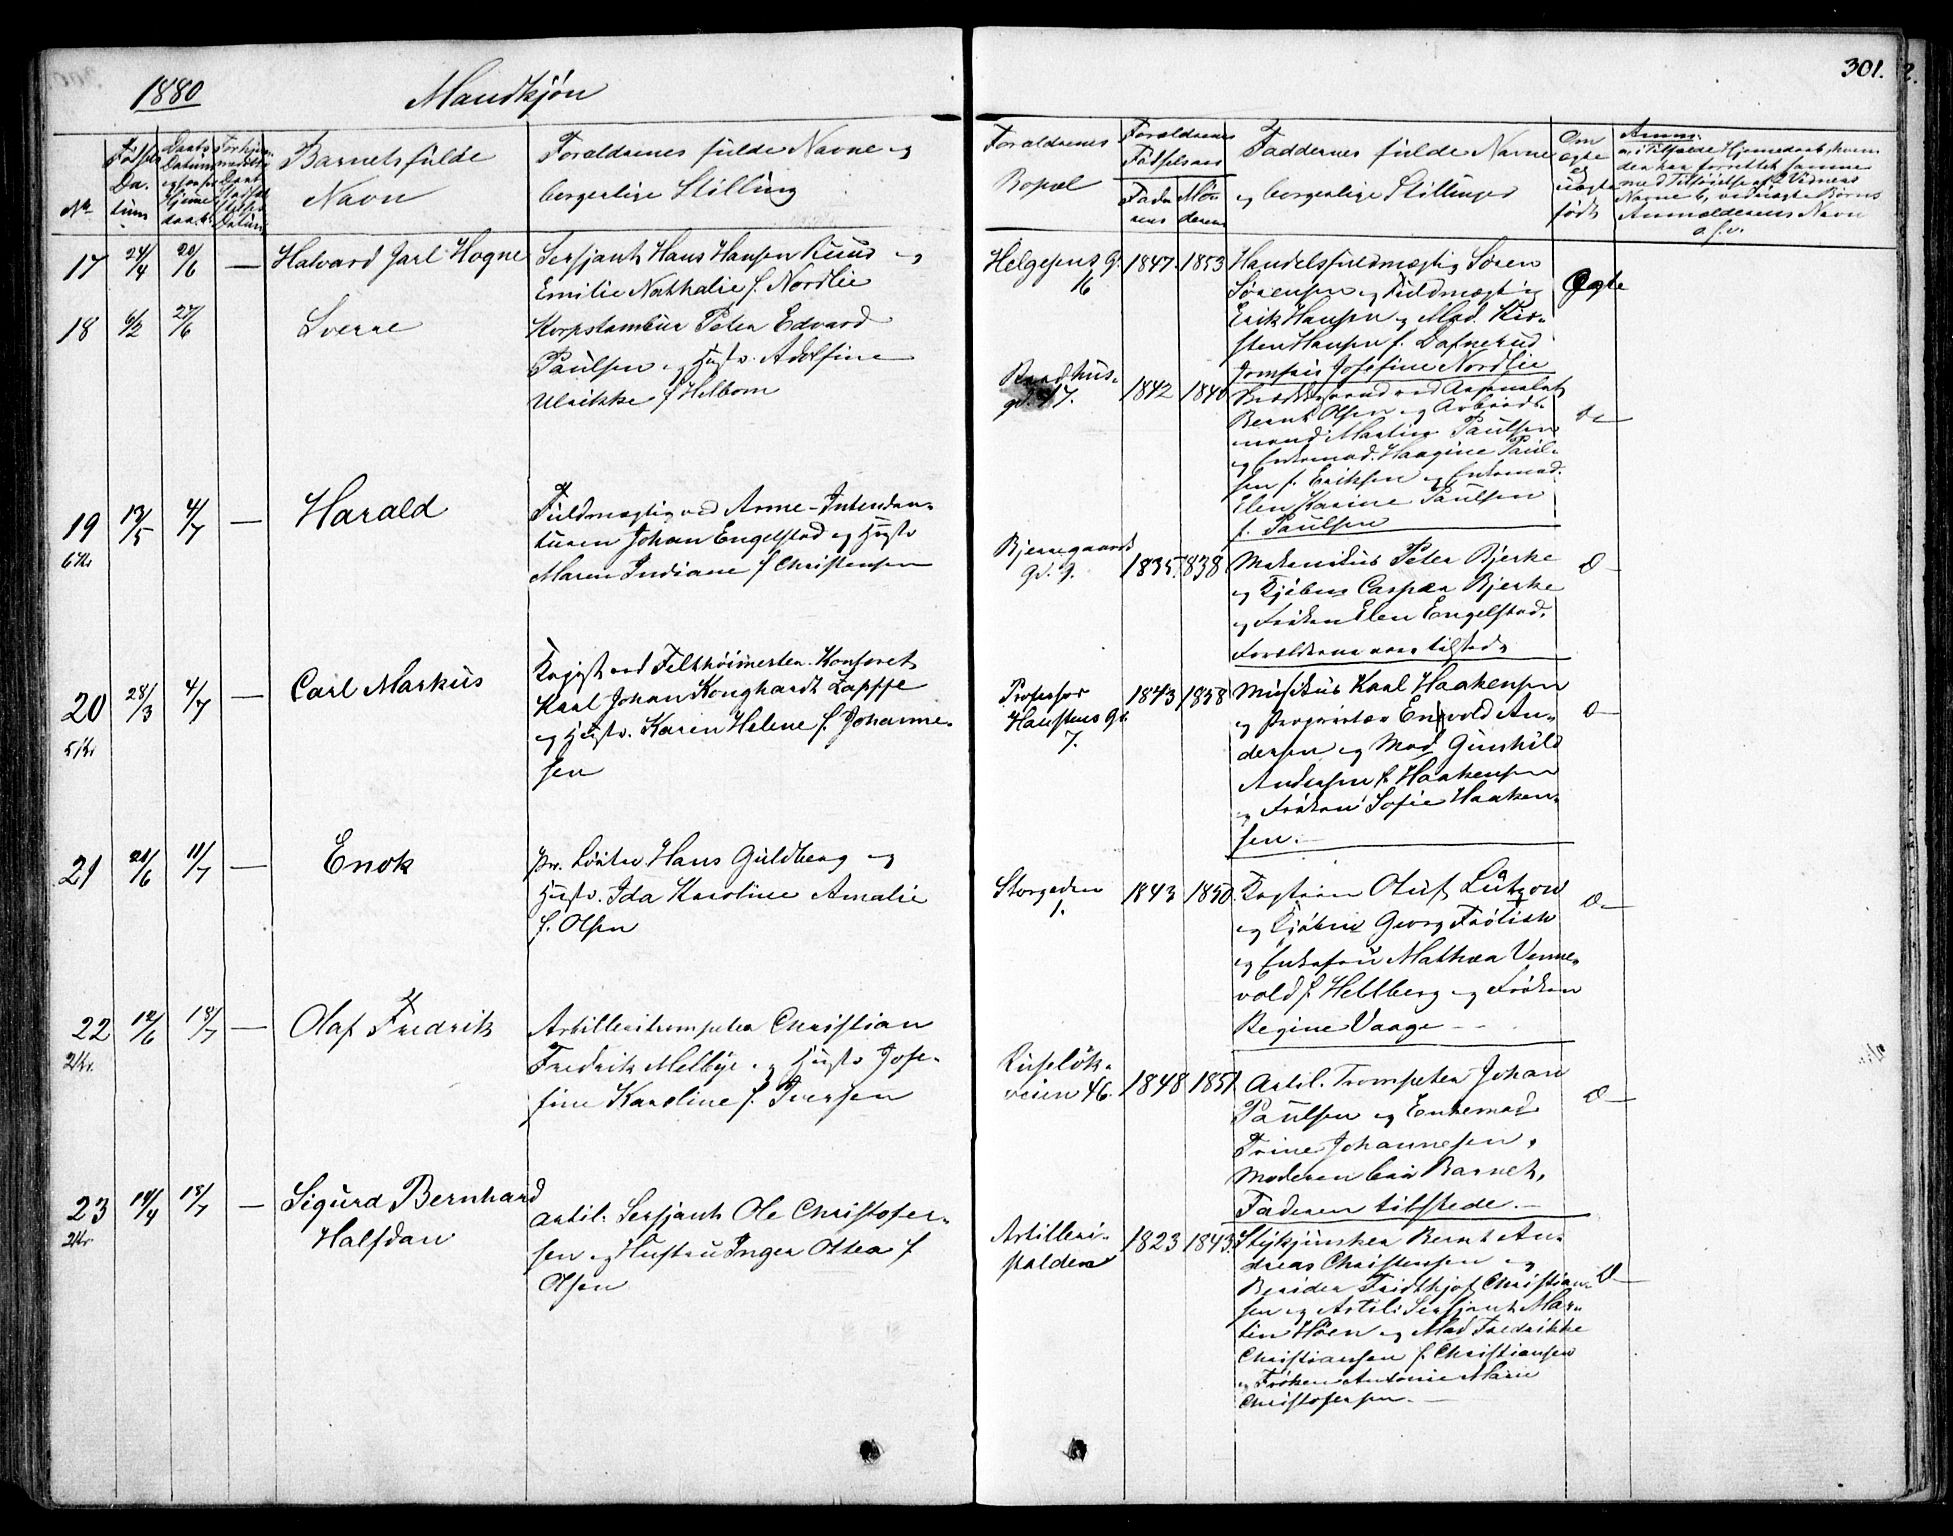 1880
Mandkjøn
301.
No
Fødsels Da- tum
Daabs Datum
Barnets fulde
Navn
Forældrenes fulde Navne og
borgerlige Stilling
Forældrenes
Bopæl
Forældrenes
Fødselsaar
Faderens
Moderens
Faddernes fulde Navne
og borgerlige Stillinger
Om ægte el uægte født
Anm.
17 24/4 20/6 — Halvard Jarl Hogne
Sersjant Hans Hansen Ruud og
Emilie Nathalie f. Nordlie
Helgesens G. 1847. 1853
Handelsfuldmægtig Søren
Sørensen og Fuldmægtig
Erik Hansen og Mad. Kir-
sten Hansen f. Dafnerud
Jomfru Josefine Nordlie
Ægte
18 6/2 27/6
Sverre
Korpstambur Peter Edvard
Paulsen og Hustr. Adolfine
Ulrikke f Helbom
Raadhus-
gd. 17. 1842 1840
ved Arsenalet
Bernt Olsen og Arbeids-
mand Martin Paulsen
og Enkemad. Haagine Paul-
sen f. Eriksen og Enkemad.
Elen Karine Paulsen
f. Paulsen
do —
19 13/5 4/7 — Harald
6 Kr
Fuldmægtig ved Arme-Intendan-
turen Johan Engelstad og Hustr
Maren Indiane f Christensen
Bjerregaards
Gd. 9. 1835. 1838
Peter Bjerke
og Kjøbm Casper Bjerke
og Frøken Elen Engelstad.
Forældrene vare tilstede
D —
20 28/3 4/7 — Carl Markus
5 Kr
Karl Johan Konghardt Zappfe
og Hustr. Karen Helene f. Johanne-
sen
Professor
Hanstens Gd.
7.
1843 1858
Musikus Karl Haakensen
og Proprietær Engvold An-
dersen og Mad Gunhild
Andersen f. Haakensen
og Frøken Sofie Haaken-
sen. —
D —
21 20/6 11/7 — Enok
Hans Guldberg og
Hustr. Ida Karoline Amalie
f. Olsen
Storgaden
1.
1843 1850
Kaptein Oluf Lützow
og Kjøbm Georg Frølich
og Enkefru Mathea Venne-
vold f. Hellberg og Frøken
Regine Vaage — —
D —
22 12/6 18/7 — Olaf Fredrik
2 Kr.
Artilleritrompeter Christian
Fredrik Melbye og Hustr Jose-
fine Karoline f. Iversen
Ruseløk-
veien 46. 1848 1851
Artil. Trompeter Johan
Paulsen og Enkemad
Trine Johannesen,
Moderen bar Barnet,
Faderen tilstede. —
D —
23 14/4 18/7 — Sigurd Bernhard
2 Kr
Halfdan
Artil. Sersjant Ole Christofer-
sen og Hustru Inger Ottea f
Olsen
Artilleri-
stalden
1823 1843.
Stykjunker Bernt An-
dreas Christensen og
Berider Fridthjof Christian-
sen og Artil. Sersjant Mar-
tin Høen og Mad Fredrikke
Christiansen f. Christiansen
og Frøken Antonie Marie
Christofersen. —
D —